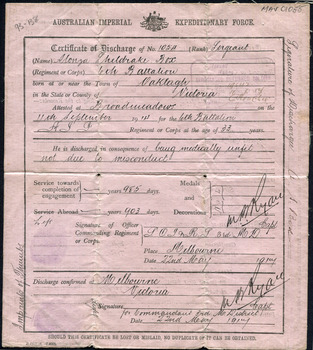 93-158
MAV 01085
AUSTRALIAN IMPERIAL EXPEDITIONARY FORCE.
Certificate of Discharge of No. 1024 (Rank) Sergeant
(Name) Sheldrake Box
(Regiment or Corps) 6th Battalion
born at or near the Town of Oakleigh
in the State or County of Victoria
Attested at Broadmeadows
on the 11th September 1914 for the 6th Battalion
(Regiment or Corps) at the age of 33 years.
He is discharged in consequence of being medically unfit
not due to misconduct
Service towards completion of engagement years 985 days. Medals and Decorations
Service Abroad years 903 days.
Signature of Officer Commanding Regiment or Corps. 3rd M.D.
Capt
Place Melbourne
Date 22nd May 1917
Discharge confirmed at Melbourne
Victoria
Signature
Capt
for Commandant 3rd M. District
Date 22nd May 1917
SHOULD THIS CERTIFICATE BE LOST OR MISLAID, NO DUPLICATE OF IT CAN BE OBTAINED.
Signature of Discharged